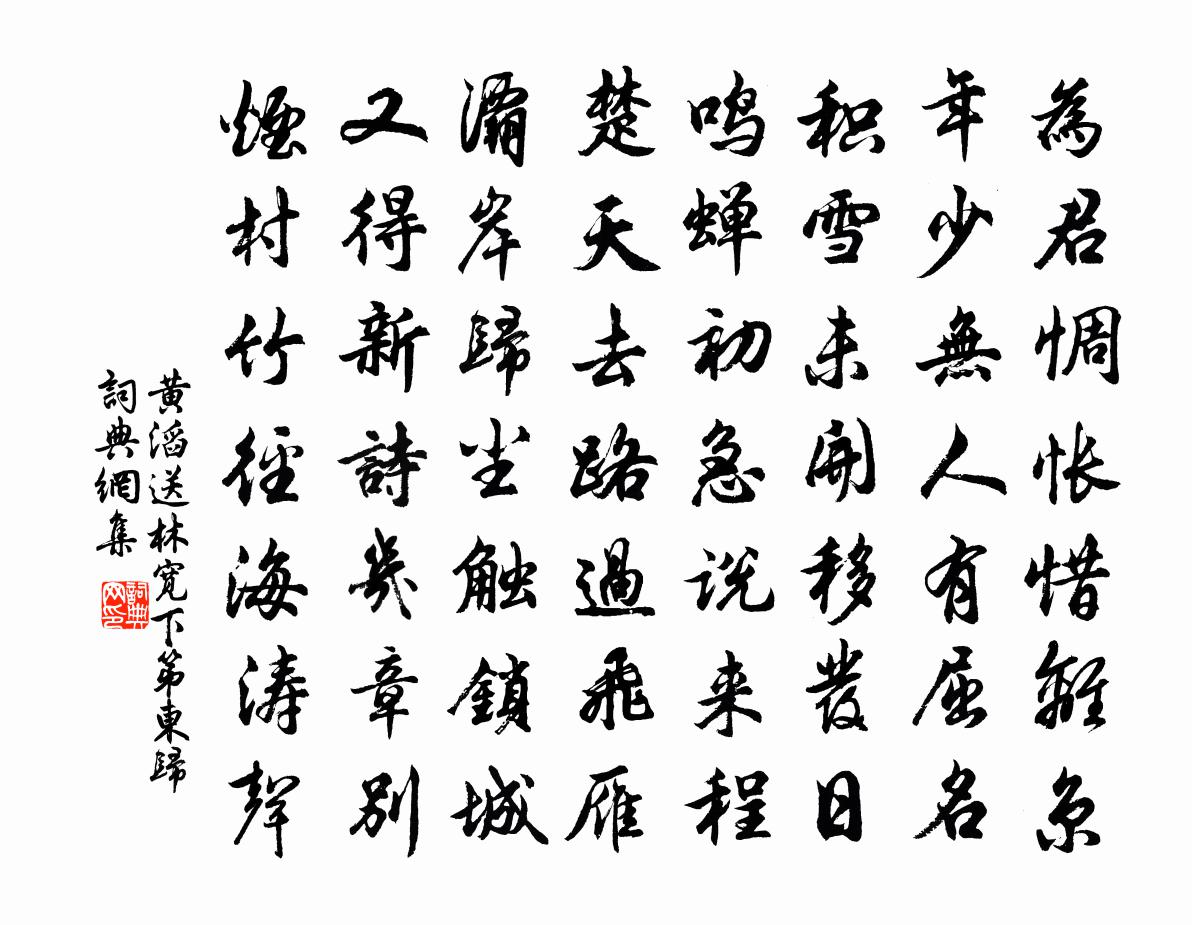 為君惆怅惜離京
年少無人有屈名
积雪未開移發日
鸣蝉初急说来程
楚天去路過飛雁
灞岸歸尘触鎖城
又得新詩幾章别
煙村竹徑海涛聲
黄滔送林寬下第東歸
詞典網集
詞典网印